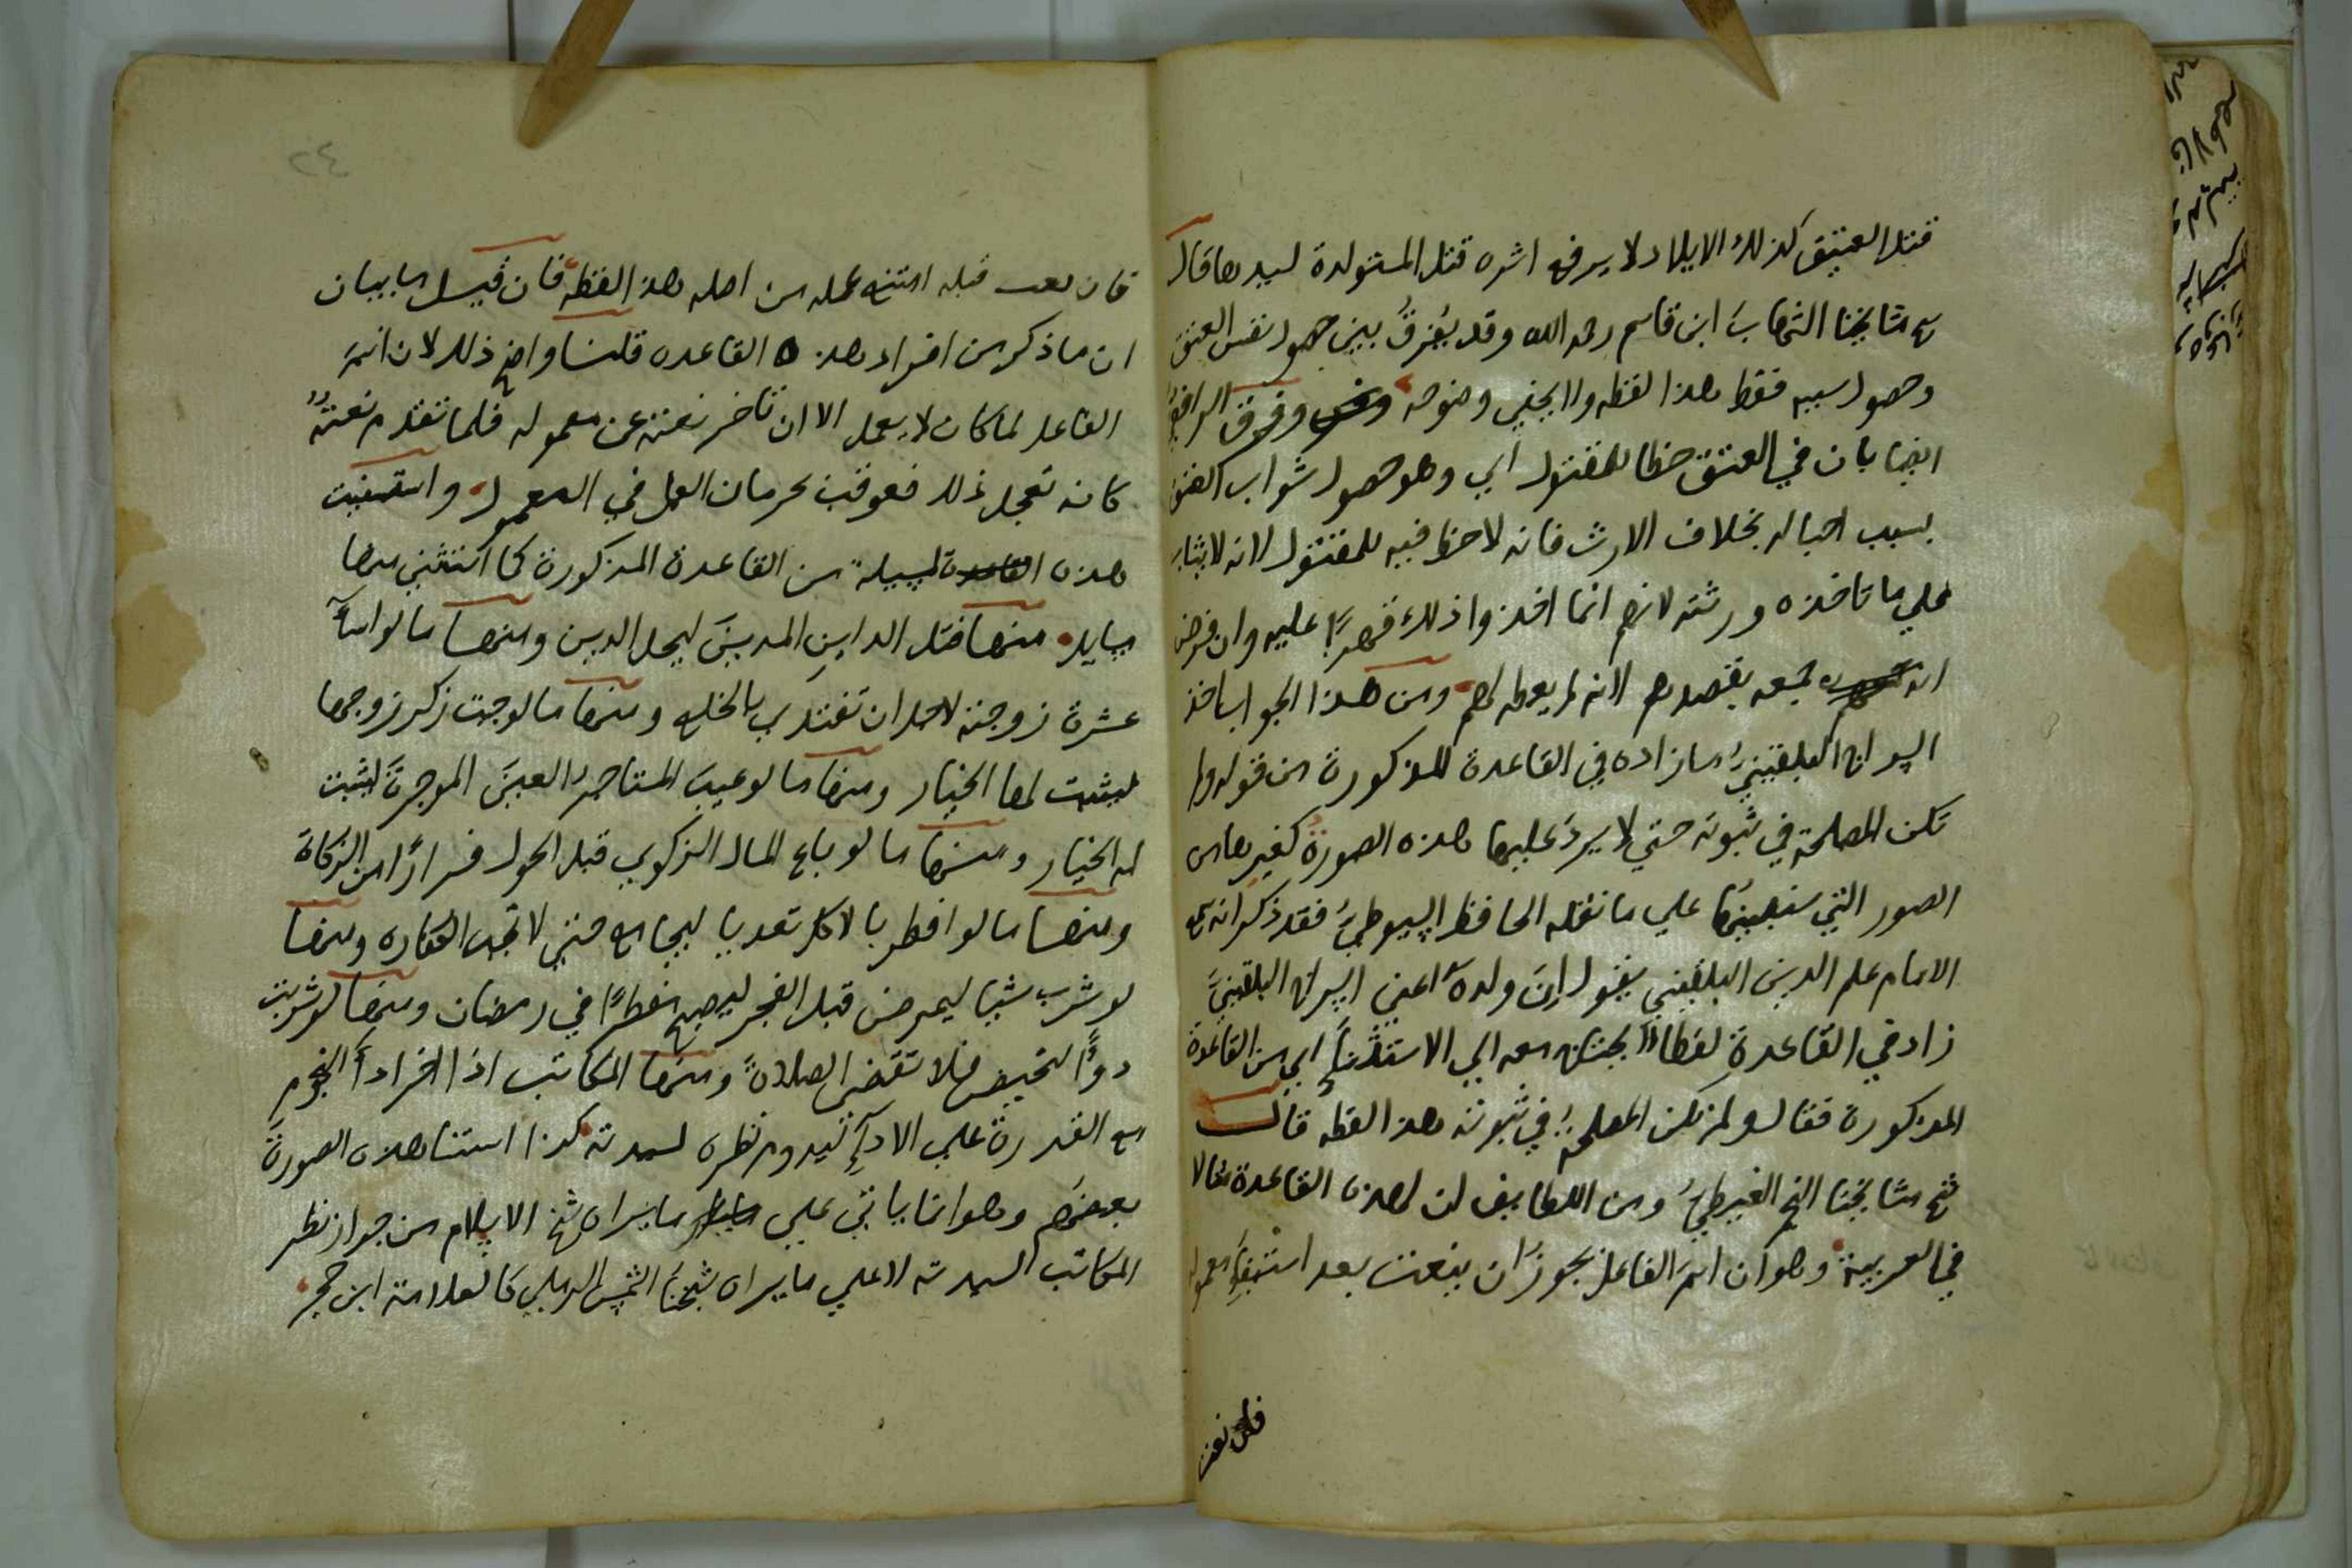 قتل العتيق كذلك الايلاد لا يرفع اثره قتل المستولدة لسيدها قال
شيخ مشايخنا الشهاب ابن قاسم رحمه الله وقد يُفرقُ بين حصول نفس العتق
وحصول سببه فقط هذا لفظه ولا يخفي وضوحه وفرق الرافعي
ايضا بان في العتق حظا للمقتول اي وهو حصول ثواب العتق
بسبب احباله بخلاف الارث فانه لاحظ فيه للمقتول لانه لا يثاب
علي ما تاخذه ورثته لانهم انما اخذوا ذلك قهرًا عليه وان فرض
انه جمعه بقصدهم لانه لم يعطه لهم ومن هذا الجواب اخذ
السراج البلقينيُ ما زاده في القاعدة المذكورة من قوله ولم
تكن المصلحة في ثبوته حتي لا يردَ عليها هذه الصورةُ كغيرها من
الصور التي سنبينُها علي ما نقله الحافظ السيوطيُ فقد ذكر انه سمع
الامام علم الدين البلقيني يقول ان والدهُ اعني السراج البلقينيَ
زاد في القاعدة لفظا لا يحتاج معه الي الاستثناءِ اي من القاعدة
المذكورة فقال ولم تكن المصلحةُ في ثبوته هذا لفظه قال
شيخ مشايخنا النجم الغيطيُ ومن اللطايف ان لهذه القاعدة مثالا
في العربية وهو ان اسمَ الفاعل يجوزُ ان ينعت بعد استيفاءِ معموله
فان نعت
٢٤
فان نعت قبله امتنع عمله من اصله هذا لفظه فان قيل ما بيان
ان ما ذكر من افراد هذه القاعده قلنا واضح ذلك لان اسمَ
الفاعل لما كان لا يعمل الا ان تاخر نعته عن معموله فلما تقدم نعتهُ
كانه تعجل ذلك فعوقب بحرمان العمل في المعمول واستثنيت
هذه المسيلة من القاعدة المذكورة كما استثني منها
مسايل منها قتل الداين المدينَ ليحل الدين ومنها ما لو اسآ
عشرة زوجته لاجل ان تفتدي بالخلع ومنها ما لو جبت ذكر زوجها
ليثبت لها الخيار ومنها ما لو عيبَ المستاجرُ العينَ الموجرةَ ليثبت
له الخيار ومنها ما لو باع المال الزكوي قبل الحول فرارًا من الزكاة
ومنها ما لو افطر بالاكل تعديا ليجامع حتي لا تجب الكفاره ومنها
لو شرب شيا ليمرض قبل الفجر ليصبح مفطرًا في رمضان ومنها لو شربت
دوآ لتحيض فلا تقضي الصلاةَ ومنها المكاتب اذا اخر ادآ النجوم
مع القدرة علي الادآءِ ليدوم نظره لسيدته كذا استثنا هذه الصورةَ
بعضهم وهو انما ياتي علي ما يراه شيخ الاسلام من جواز نظر
المكاتب لسيدته لا علي ما يراه شيخنا الشمس الرملي كالعلامة ابن حجر